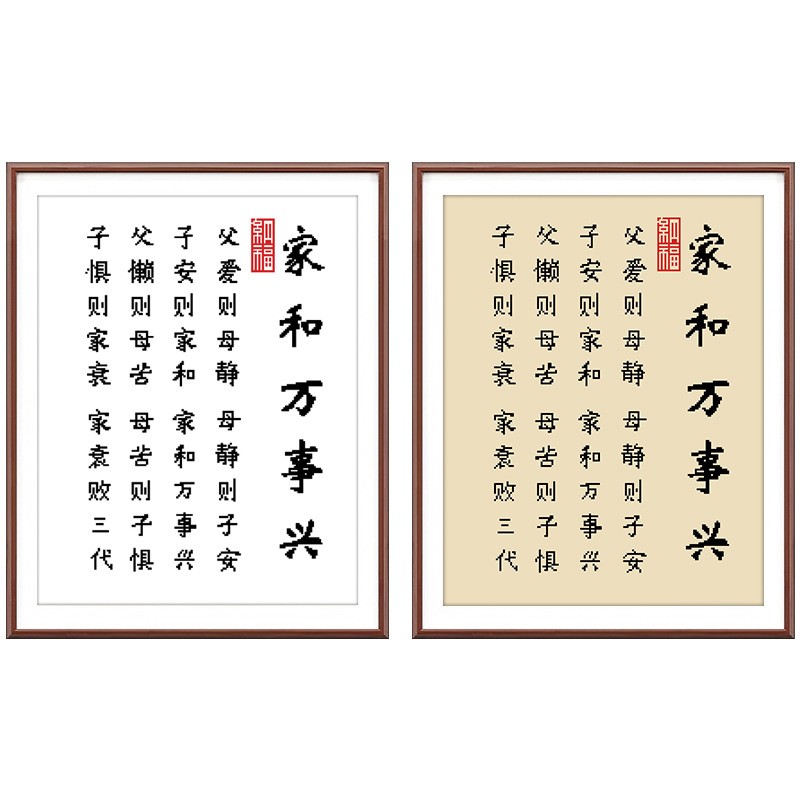 家和万事兴
納福
父爱则母静 母静则子安
子安则家和 家和万事兴
父懒则母苦 母苦则子惧
子惧则家衰 家衰败三代
家和万事兴
納福
父爱则母静 母静则子安
子安则家和 家和万事兴
父懒则母苦 母苦则子惧
子惧则家衰 家衰败三代